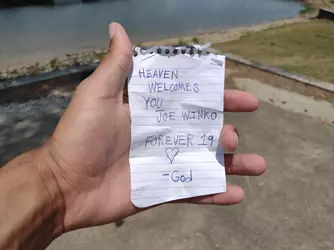 HEAVEN
WELCOMES
YOU
JOE WINKO
FOREVER 19
-God